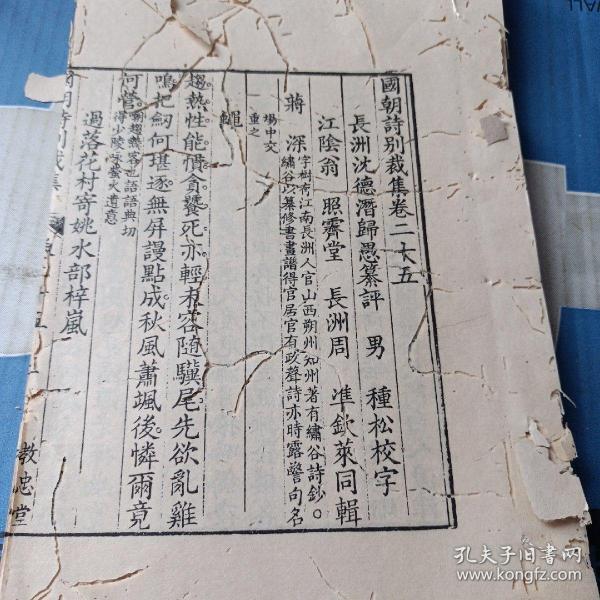 國朝詩別裁集卷二十五
長洲沈德潛歸愚纂評 男 種松校字
江陰翁 照霽堂 長洲周 準欽萊同輯
蔣 深 字樹存江南長洲人官山西朔州知州著有繡谷詩鈔。
繡谷以纂修書畫譜得官居官有政聲詩亦時露警句名
場中交
重之
蠅
趨熱性能慣貪饕死亦輕有容隨驥尾先欲亂雞
鳴把劒何堪逐無屏謾點成秋風蕭颯後憐爾竟
何營 嘲趨熱客也語語典切
得少陵詠螢火遺意
過落花村寄姚水部梓嵐
教忠堂
孔夫子旧书网
www.kongfz.com